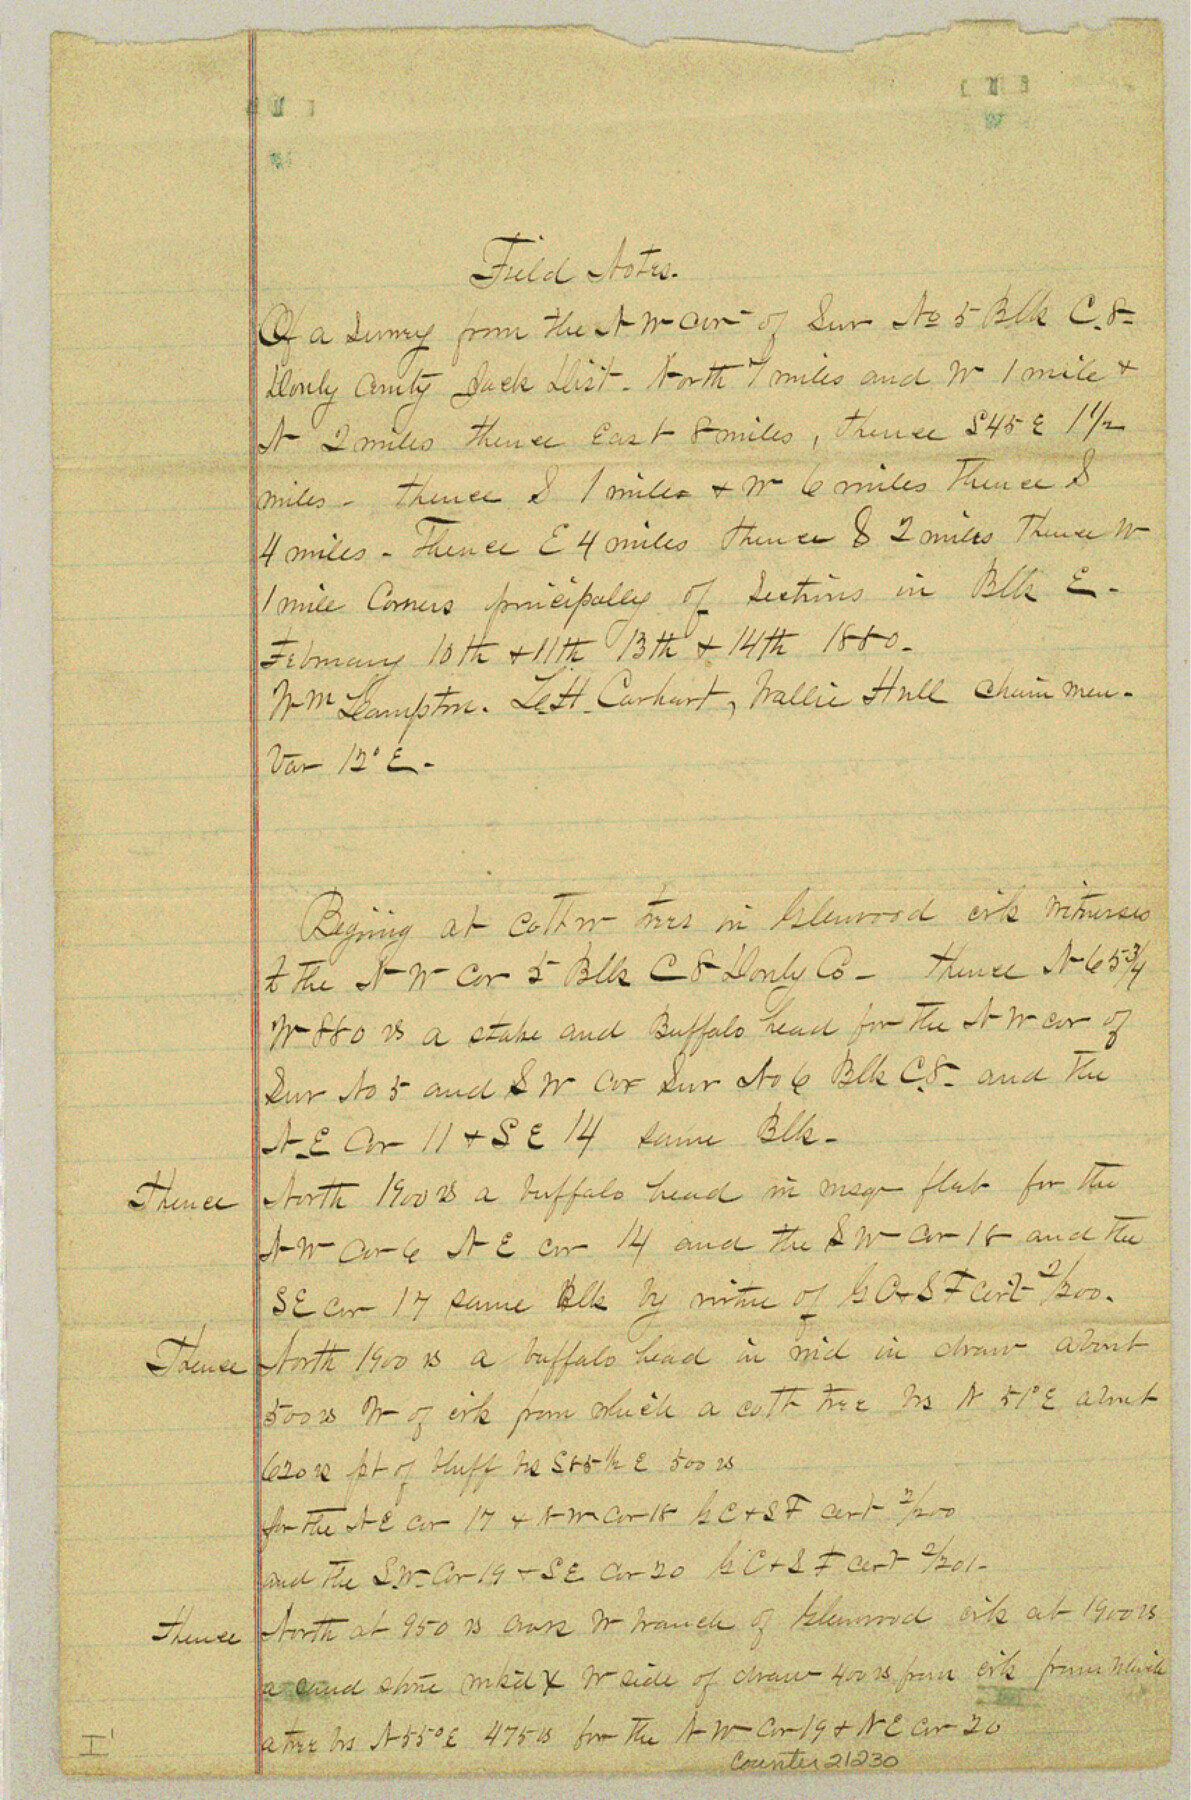 Field Notes.
Of a Survey from the N W cor of Sur No 5 Blk C. 8-
Donly County Jack Dist. North 7 miles and W 1 mile +
N 2 miles thence East 8 miles, thence S45 E 1 1/2
miles - thence S 1 miles + W 6 miles thence S
4 miles - Thence E 4 miles thence S 2 miles thence W
1 mile Corners principally of Sections in Blk E -
February 10th + 11th 13th + 14th 1880.
Wm Hampton. Le.H. Carhart, Wallie Hull chain men.
Var 12° E.
Begining at cottw trees in Glenwood crk witnesses
to the N W cor 5 Blk C 8 Donly Co - thence N 65 3/4
W 880 vs a stake and Buffalo head for the N W cor of
Sur No 5 and S W cor Sur No 6 Blk C.8- and the
N.E Cor 11 + S E 14 same Blk -
Thence North 1900 vs a buffalo head in msqr flat for the
N W Cor 6 N E cor 14 and the S W Cor 18 and the
SE cor 17 same Blk by virtue of G C + S F cert 2/200.
Thence North 1900 vs a buffalo head in md in draw about
500 vs W of crk from which a cott tree brs N 51° E about
620 vs pt of bluff brs S85 1/2 E 500 vs
for the N E cor 17 + N W Cor 18 G C + S F cert 2/200
and the S.W. Cor 19 + S E Cor 20 G C + S F cert 2/201-
Thence North at 950 vs cross W branch of Glenwood crk at 1900 vs
a sand stone mkd X W side of draw 400 vs from crk from which
a tree brs N 55° E 475 vs for the N W Cor 19 + N E Cor 20
Counter 21230